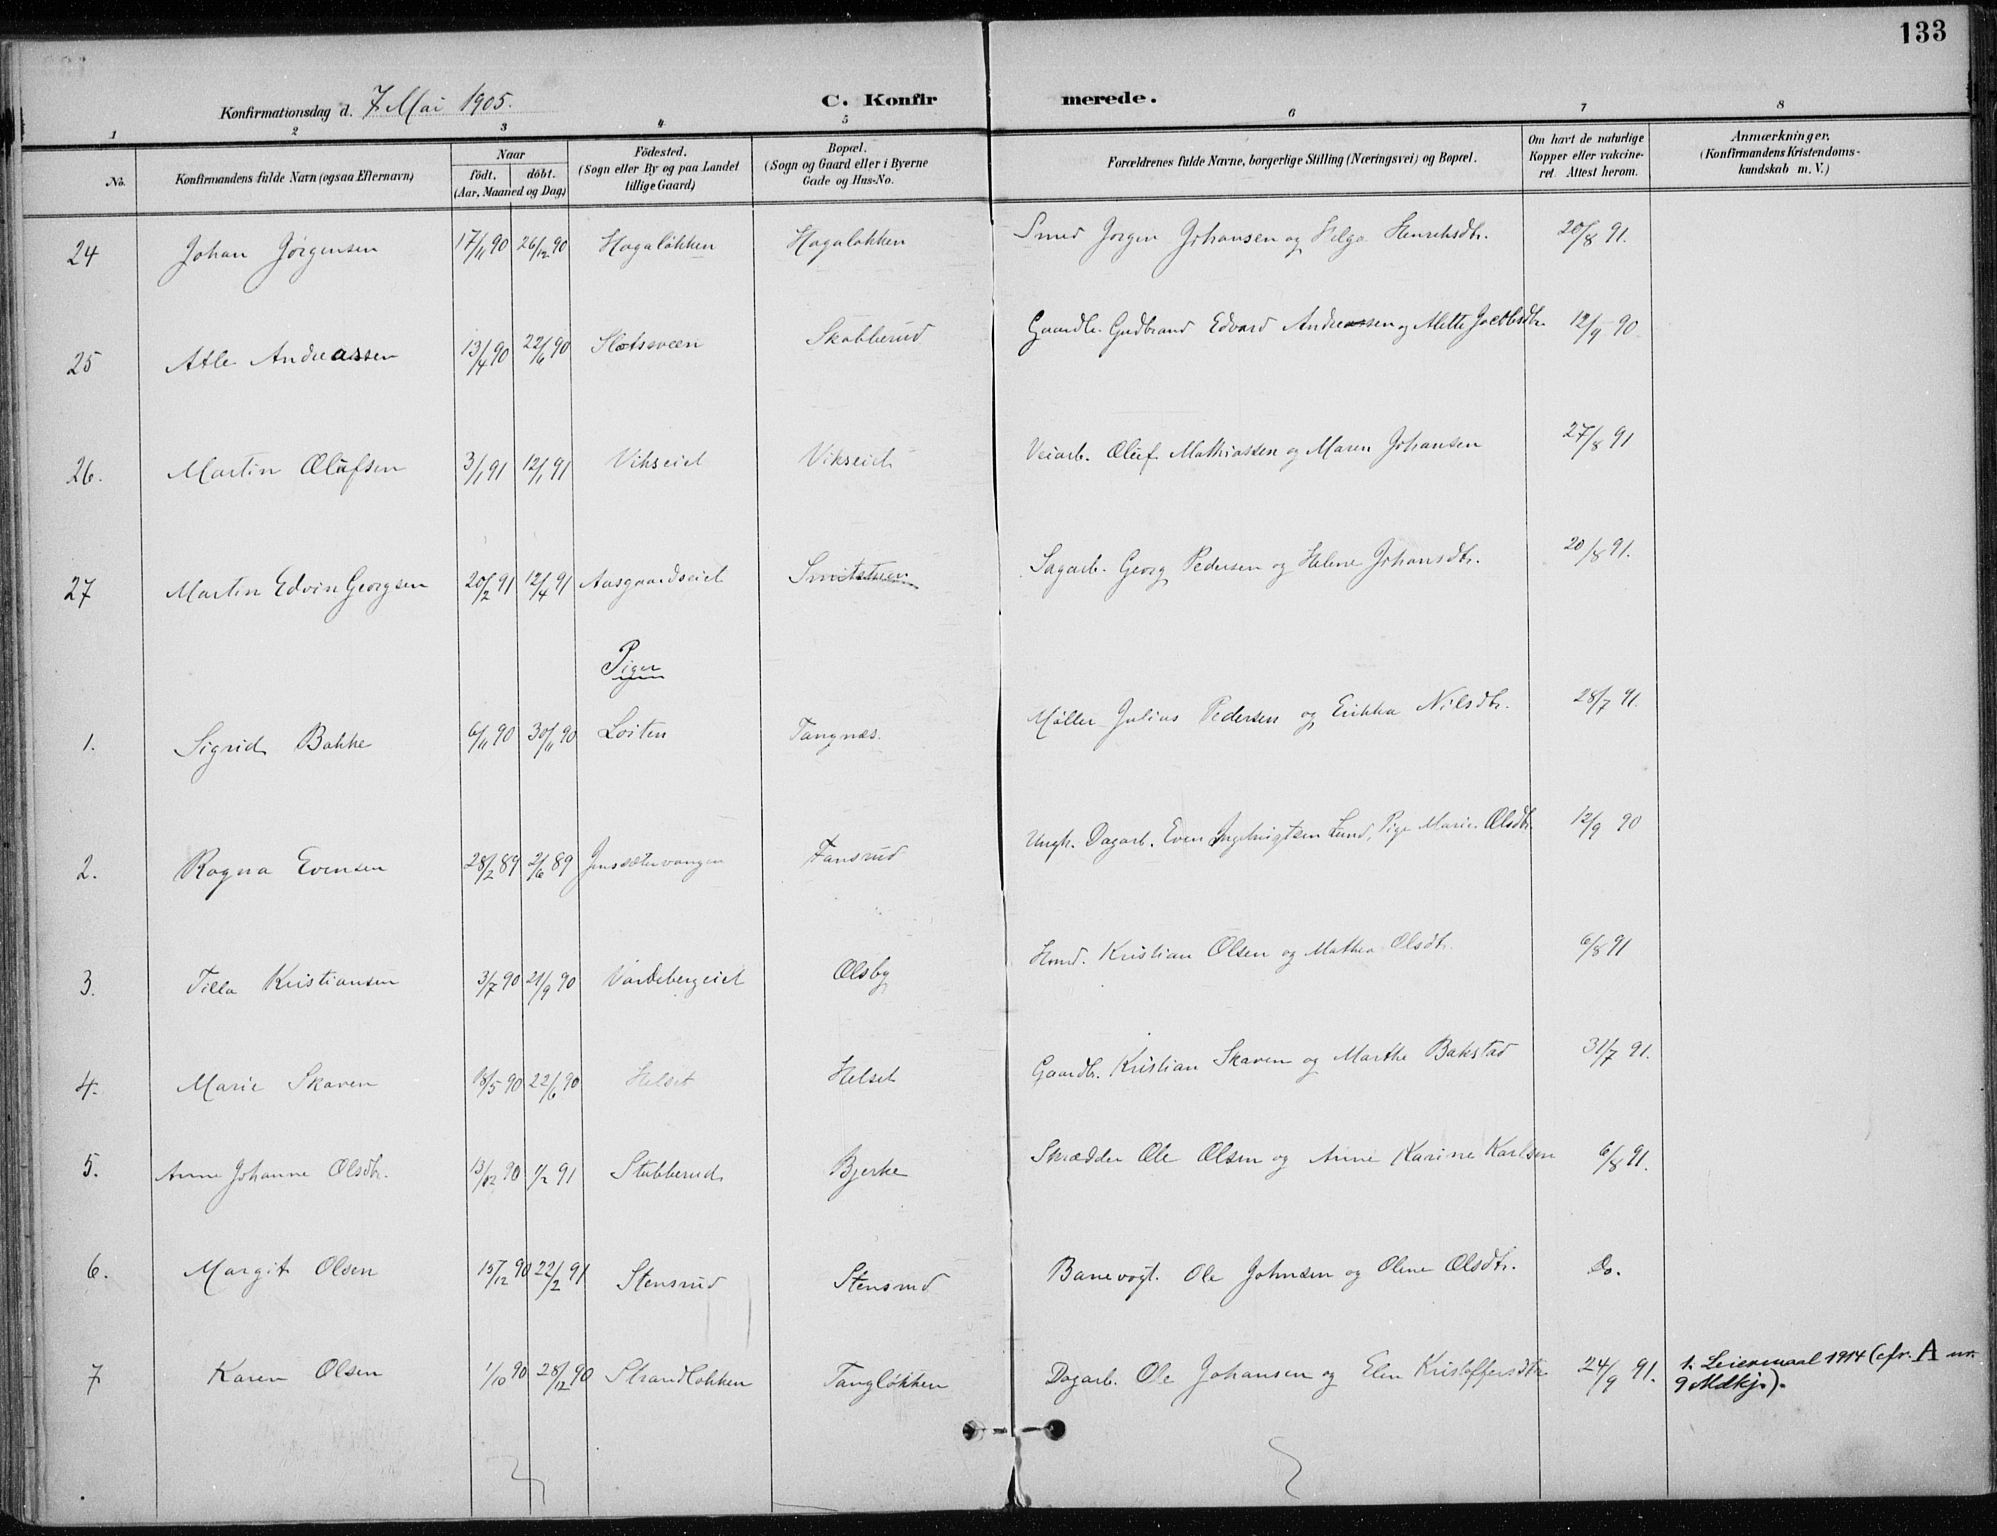 133
Konfirmationsdag d. 7 Mai 1905. C. Konfir merede.
1 2 3 4 5 6 7 8
No. Konfirmandens fulde Navn (ogsaa Efternavn) Naar födt. döbt. (Aar, Maaned og Dag) Födested. (Sogn eller By og paa Landet tillige Gaard) Bopæl. (Sogn og Gaard eller i Byerne Gade og Hus-No. Forældrenes fulde Navne, borgerlige Stilling (Næringsvei) og Bopæl. Om havt de naturlige Kopper eller vakcineret. Attest herom. Anmærkninger. (Konfirmandens Kristendomskundskab m. V.)
24 Johan Jörgensen 17/11 90 26/12 90 Hagalökken Hagalökken Smed Jörgen Johansen og Helga Henriksdtr. 20/8 91.
25 Atle Andreassen 13/4 90 22/6 90 Slotsveen Skabberud Gaardbr. Gudbrand Edvard Andreassen og Alette Jacobsdtr. 12/9 90.
26. Martin Olufsen 3/1 91 12/1 91 Vikseiet Vikseiet Veiarb. Oluf Mathiassen og Maren Johansen 27/8 91
27 Martin Edvin Georgsen 20/2 91 12/4 91 Aasgaardseiet Sagarb. Georg Pedersen og Helene Johansdtr. 20/8 91.
Piger
1. Sigrid Bakke 6/11 90 30/11 90 Löiten Tangnæs. Möller Julius Pedersen og Erikka Nilsdtr. 28/7 91.
2. Ragna Evensen 28/2 89 2/6 89 Jenssætervangen Fansrud Ungk. Dagarb. Even Ingebrigtsen Lund, Pige Marie Olsdtr. 12/9 90
3. Tilla Kristiansen 3/7 90 21/9 90 Vardebergeiet Olsby Hmd. Kristian Olsen og Mathea Olsdtr. 6/8 91
4. Marie Skaven 18/5 90 22/6 90 Helset Helset Gaardbr. Kristian Skaven og Marthe Bakstad 31/7 91.
5. Anne Johanne Olsdtr. 13/12 90 1/2 91 Stubberud Bjerke Skrædder Ole Olsen og Anne Karine Karlsen 6/8 91.
6. Margit Olsen 15/12 90 22/2 91 Stensrud Stensrud Banevogt. Ole Johnsen og Oline Olsdtr. Do.
7. Karen Olsen 1/10 90 28/12 90 Strandlökken Tanglökken Dagarb. Ole Johansen og Elen Kristoffersdtr 24/9 91. 1. Leiermaal 1914 (cfr. A nr. 9 Mdkj.).